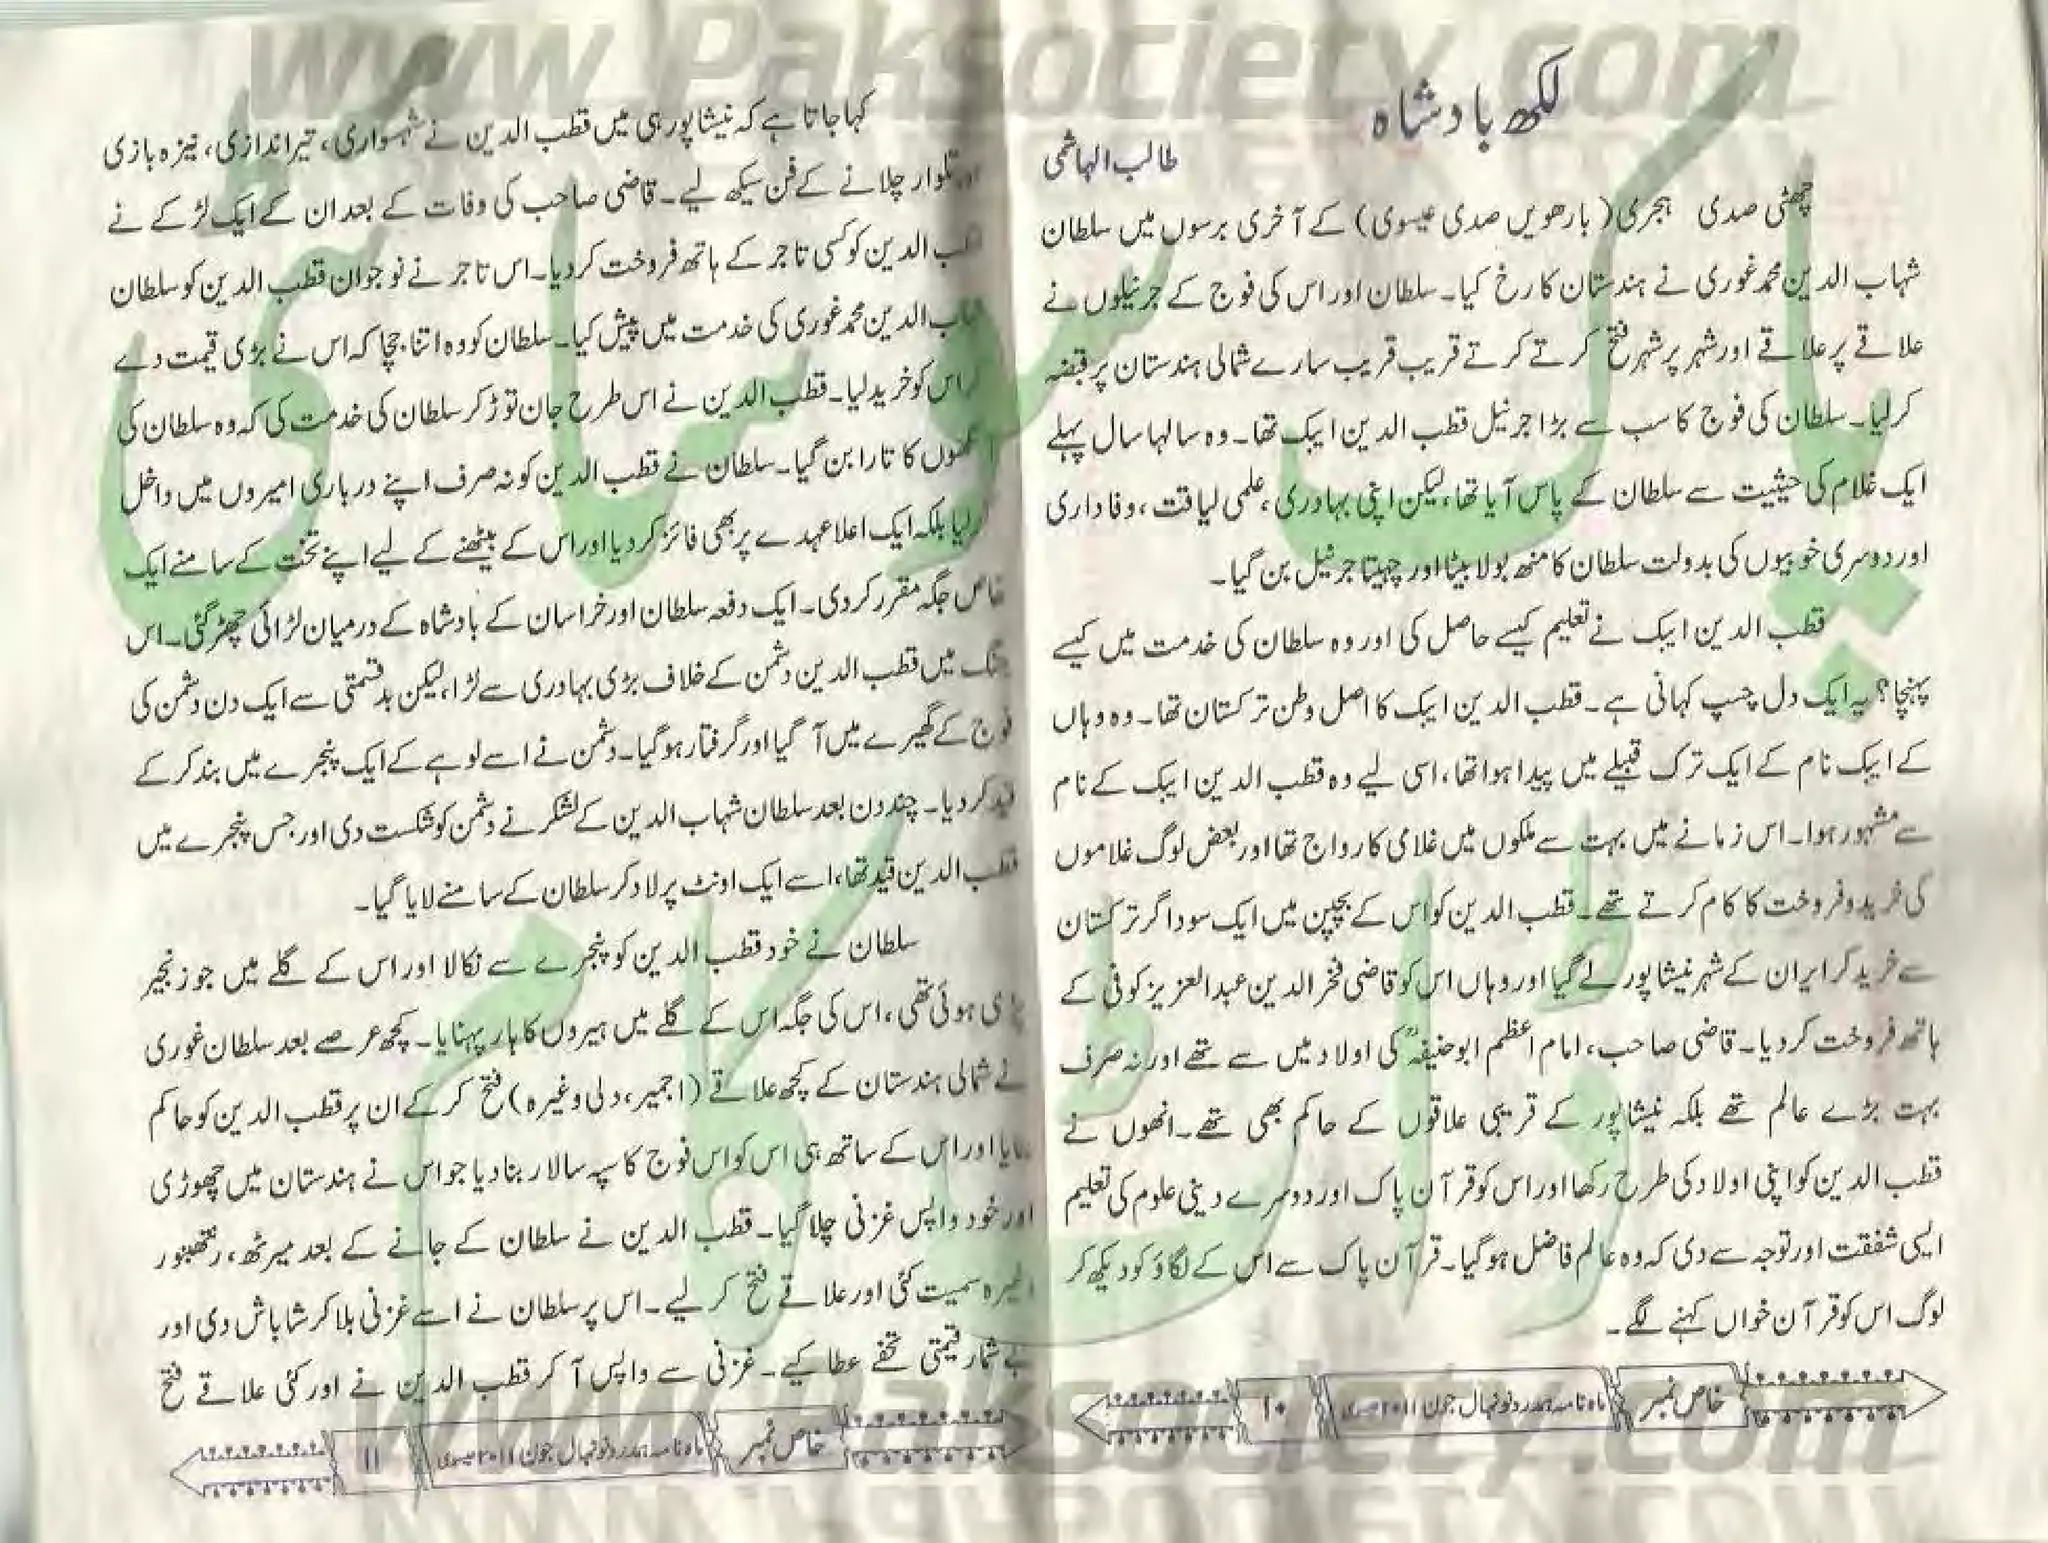 www.Paksociety.com
لکھ بادشاہ
طالب الہاشمی
چھٹی صدی ہجری (بارھویں صدی عیسوی) کے آخری برسوں میں سلطان
شہاب الدین محمد غوری نے ہندستان کا رخ کیا۔ سلطان اور اس کی فوج کے جرنیلوں نے
علاقے پر علاقے اور شہر پر شہر فتح کرتے کرتے قریب قریب سارے شمالی ہندستان پر قبضہ
کر لیا۔ سلطان کی فوج کا سب سے بڑا جرنیل قطب الدین ایبک تھا۔ وہ سالہا سال پہلے
ایک غلام کی حیثیت سے سلطان کے پاس آیا تھا، لیکن اپنی بہادری، علمی لیاقت، وفاداری
اور دوسری خوبیوں کی بدولت سلطان کا منھ بولا بیٹا اور چہیتا جرنیل بن گیا۔
قطب الدین ایبک نے تعلیم کیسے حاصل کی اور وہ سلطان کی خدمت میں کیسے
پہنچا؟ یہ ایک دل چسپ کہانی ہے۔ قطب الدین ایبک کا اصل وطن ترکستان تھا۔ وہ وہاں
کے ایبک نام کے ایک ترک قبیلے میں پیدا ہوا تھا، اسی لیے وہ قطب الدین ایبک کے نام
سے مشہور ہوا۔ اس زمانے میں بہت سے ملکوں میں غلامی کا رواج تھا اور بعض لوگ غلاموں
کی خرید و فروخت کا کام کرتے تھے۔ قطب الدین کو اس کے بچپن میں ایک سوداگر ترکستان
سے خرید کر ایران کے شہر نیشاپور لے گیا اور وہاں اس کو قاضی فخر الدین عبدالعزیز کوفی کے
ہاتھ فروخت کر دیا۔ قاضی صاحب، امام اعظم ابو حنیفہؒ کی اولاد میں سے تھے اور نہ صرف
بہت بڑے عالم تھے بلکہ نیشاپور کے قریبی علاقوں کے حاکم بھی تھے۔ انھوں نے
قطب الدین کو اپنی اولاد کی طرح رکھا اور اس کو قرآن پاک اور دوسرے دینی علوم کی تعلیم
ایسی شفقت اور توجہ سے دی کہ وہ عالم فاضل ہو گیا۔ قرآن پاک سے اس کے لگاؤ کو دیکھ کر
لوگ اس کو قرآن خواں کہنے لگے۔
خاص نمبر ماہ نامہ ہمدرد نونہال جون ۲۰۱۱ عیسوی ۱۰
کہا جاتا ہے کہ نیشاپور ہی میں قطب الدین نے شہسواری، تیر اندازی، نیزہ بازی
اور تلوار چلانے کے فن سیکھ لیے۔ قاضی صاحب کی وفات کے بعد ان کے ایک لڑکے نے
قطب الدین کو کسی تاجر کے ہاتھ فروخت کر دیا۔ اس تاجر نے نوجوان قطب الدین کو سلطان
شہاب الدین محمد غوری کی خدمت میں پیش کیا۔ سلطان کو وہ اتنا جچا کہ اس نے بڑی قیمت دے
کر اس کو خرید لیا۔ قطب الدین نے اس طرح جان توڑ کر سلطان کی خدمت کی کہ وہ سلطان کی
آنکھوں کا تارا بن گیا۔ سلطان نے قطب الدین کو نہ صرف اپنے درباری امیروں میں داخل
کر لیا بلکہ ایک اعلا عہدے پر بھی فائز کر دیا اور اس کے بیٹھنے کے لیے اپنے تخت کے سامنے ایک
خاص جگہ مقرر کر دی۔ ایک دفعہ سلطان اور خراسان کے بادشاہ کے درمیان لڑائی چھڑ گئی۔ اس
جنگ میں قطب الدین دشمن کے خلاف بڑی بہادری سے لڑا، لیکن بدقسمتی سے ایک دن دشمن کی
فوج کے گھیرے میں آ گیا اور گرفتار ہو گیا۔ دشمن نے اسے لوہے کے ایک پنجرے میں بند کر کے
قید کر دیا۔ چند دن بعد سلطان شہاب الدین کے لشکر نے دشمن کو شکست دی اور جس پنجرے میں
قطب الدین قید تھا، اسے ایک اونٹ پر لاد کر سلطان کے سامنے لایا گیا۔
سلطان نے خود قطب الدین کو پنجرے سے نکالا اور اس کے گلے میں جو زنجیر
پڑی ہوئی تھی، اس کی جگہ اس کے گلے میں ہیروں کا ہار پہنایا۔ کچھ عرصے بعد سلطان غوری
نے شمالی ہندستان کے کچھ علاقے (اجمیر، دلی وغیرہ) فتح کر کے ان پر قطب الدین کو حاکم
بنایا اور اس کے ساتھ ہی اس کو اس فوج کا سپہ سالار بنا دیا جو اس نے ہندستان میں چھوڑی
اور خود واپس غزنی چلا گیا۔ قطب الدین نے سلطان کے جانے کے بعد میرٹھ، رنتھنبور
وغیرہ سمیت کئی اور علاقے فتح کر لیے۔ اس پر سلطان نے اسے غزنی بلا کر شاباش دی اور
بے شمار قیمتی تحفے عطا کیے۔ غزنی سے واپس آ کر قطب الدین نے اور کئی علاقے فتح
خاص نمبر ماہ نامہ ہمدرد نونہال جون ۲۰۱۱ عیسوی ۱۱
پاک سوسائٹی
ڈاٹ کام
www.paksociety.com